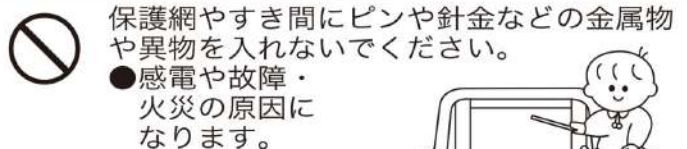 保護網やすき間にピンや針金などの金属物
や異物を入れないでください。
●感電や故障・
火災の原因に
なります。